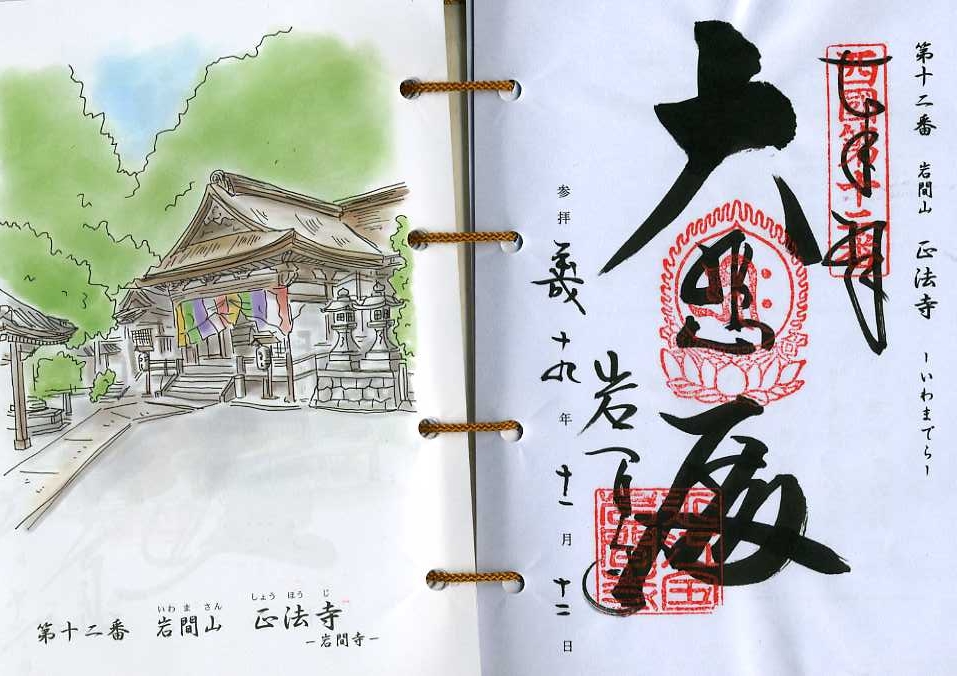 第十二番 岩間山 正法寺 －いわまでら－
西國第十二番
奉拝
大悲殿
岩間寺
参拝 平成十九年十一月十二日
いわ ま さん しょう ほう じ
第十二番 岩間山 正法寺
－岩間寺－